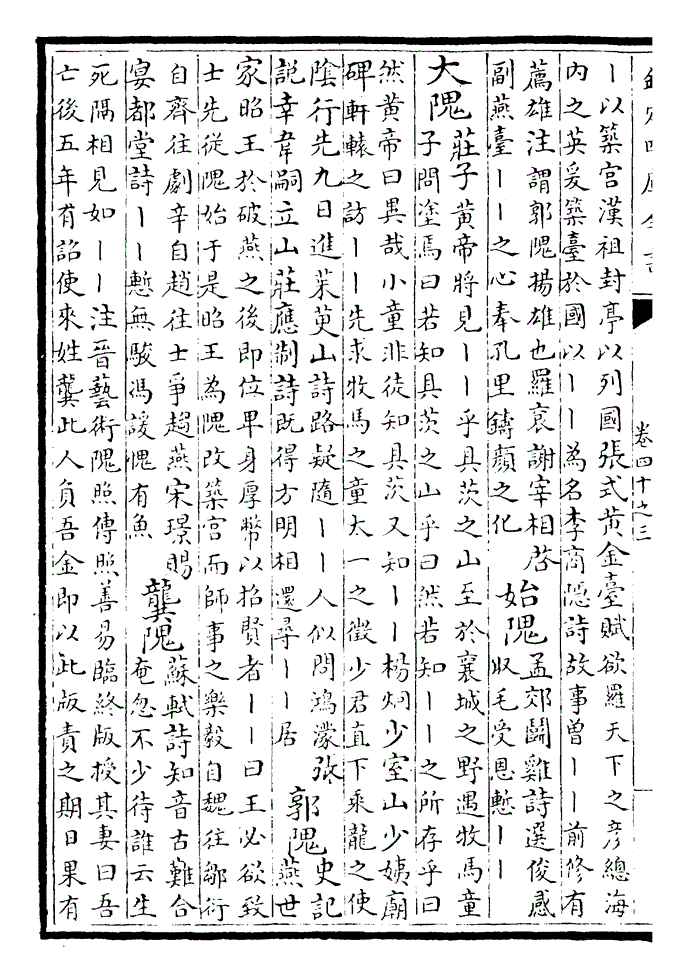 欽定四庫全書
卷四十之三
丨以築宮漢祖封亭以列國張式黃金臺賦欲羅天下之彥總海
內之英爰築臺於國以丨丨為名李商隱詩故事曾丨丨前修有
薦雄注謂郭隗揚雄也羅袞謝宰相啓
副燕臺丨丨之心奉孔里鑄顏之化
始隗
孟郊鬪雞詩選俊感
收毛受恩慙丨丨
大隗
莊子黃帝將見丨丨乎具茨之山至於襄城之野遇牧馬童
子問塗焉曰若知具茨之山乎曰然若知丨丨之所存乎曰
然黃帝曰異哉小童非徒知具茨又知丨丨楊炯少室山少姨廟
碑軒轅之訪丨丨先求牧馬之童太一之徵少君直下乘龍之使
陰行先九日進茱萸山詩路疑隨丨丨人似問鴻濛張
說幸韋嗣立山莊應制詩既得方明相還尋丨丨居
郭隗
史記
燕世
家昭王於破燕之後即位卑身厚幣以招賢者丨丨曰王必欲致
士先從隗始于是昭王為隗改築宮而師事之樂毅自魏往鄒衍
自齊往劇辛自趙往士爭趨燕宋璟賜
宴都堂詩丨丨慙無駿馮諼愧有魚
龔隗
蘇軾詩知音古難合
奄忽不少待誰云生
死隔相見如丨丨注晉藝術隗照傳照善易臨終版授其妻曰吾
亡後五年有詔使來姓龔此人負吾金即以此版責之期日果有